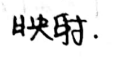 映射.